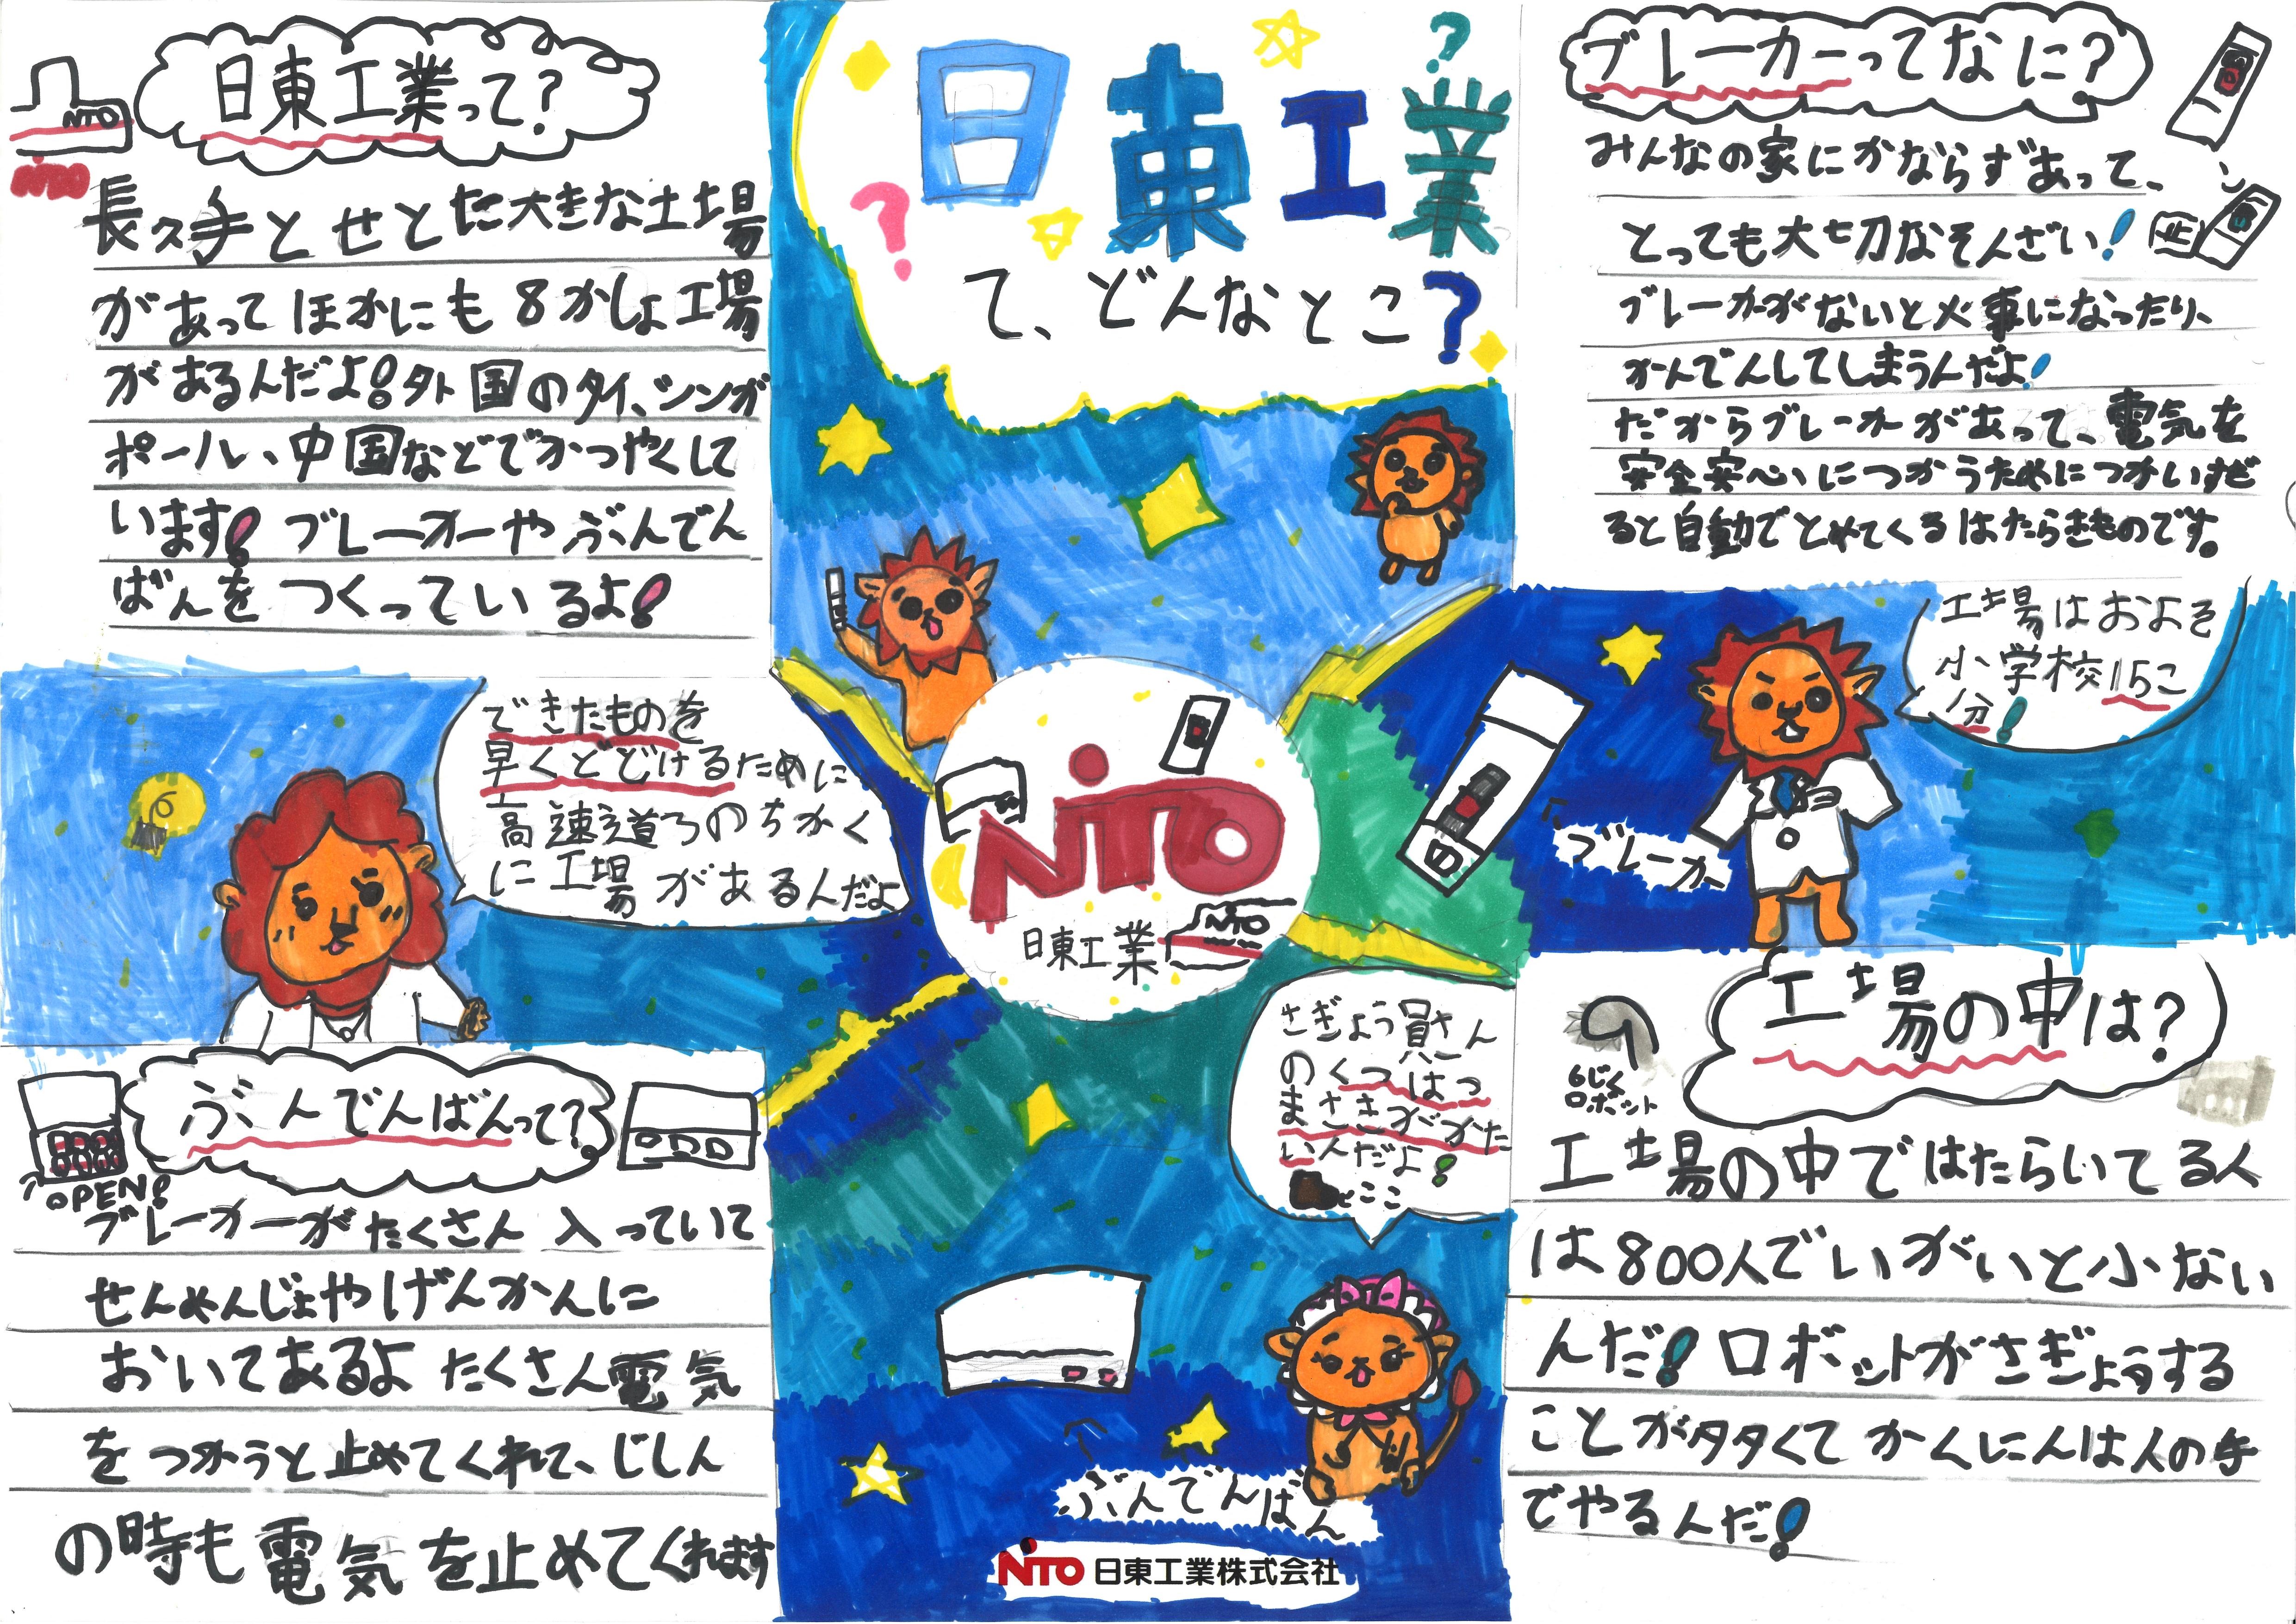 日東工業
て、どんなとこ?
日東工業って?
NITO
NITO
長久手とせとに大きな工場
があってほかにも8かしょ工場
があるんだよ!外国のタイ、シンガ
ポール、中国などでかつやくして
います!ブレーカーやぶんでん
ばんをつくっているよ!
ブレーカーってなに?
みんなの家にかならずあって、
とっても大切なそんざい!
ブレーカーがないと火事になったり、
かんでんしてしまうんだよ!
だからブレーカーがあって、電気を
安全安心につかうためにつかいすぎ
ると自動でとめてくるはたらきものです。
できたものを
早くとどけるために
高速道ろのちかく
に工場があるんだよ
NITO
日東工業
NITO
ブレーカー
工場はおよそ
小学校15こ
分!
ぶんでんばんって?
OPEN!
ブレーカーがたくさん入っていて
せんめんじょやげんかんに
おいてあるよたくさん電気
をつかうと止めてくれて、じしん
の時も電気を止めてくれます
さぎょう員さん
のくつはつ
まさきがかた
いんだよ!
ここ
ぶんでんばん
NITO 日東工業株式会社
工場の中は?
6じく
ロボット
工場の中ではたらいてる人
は800人でいがいと小ない
んだ!ロボットがさぎょうする
ことが多くてかくにんは人の手
でやるんだ!